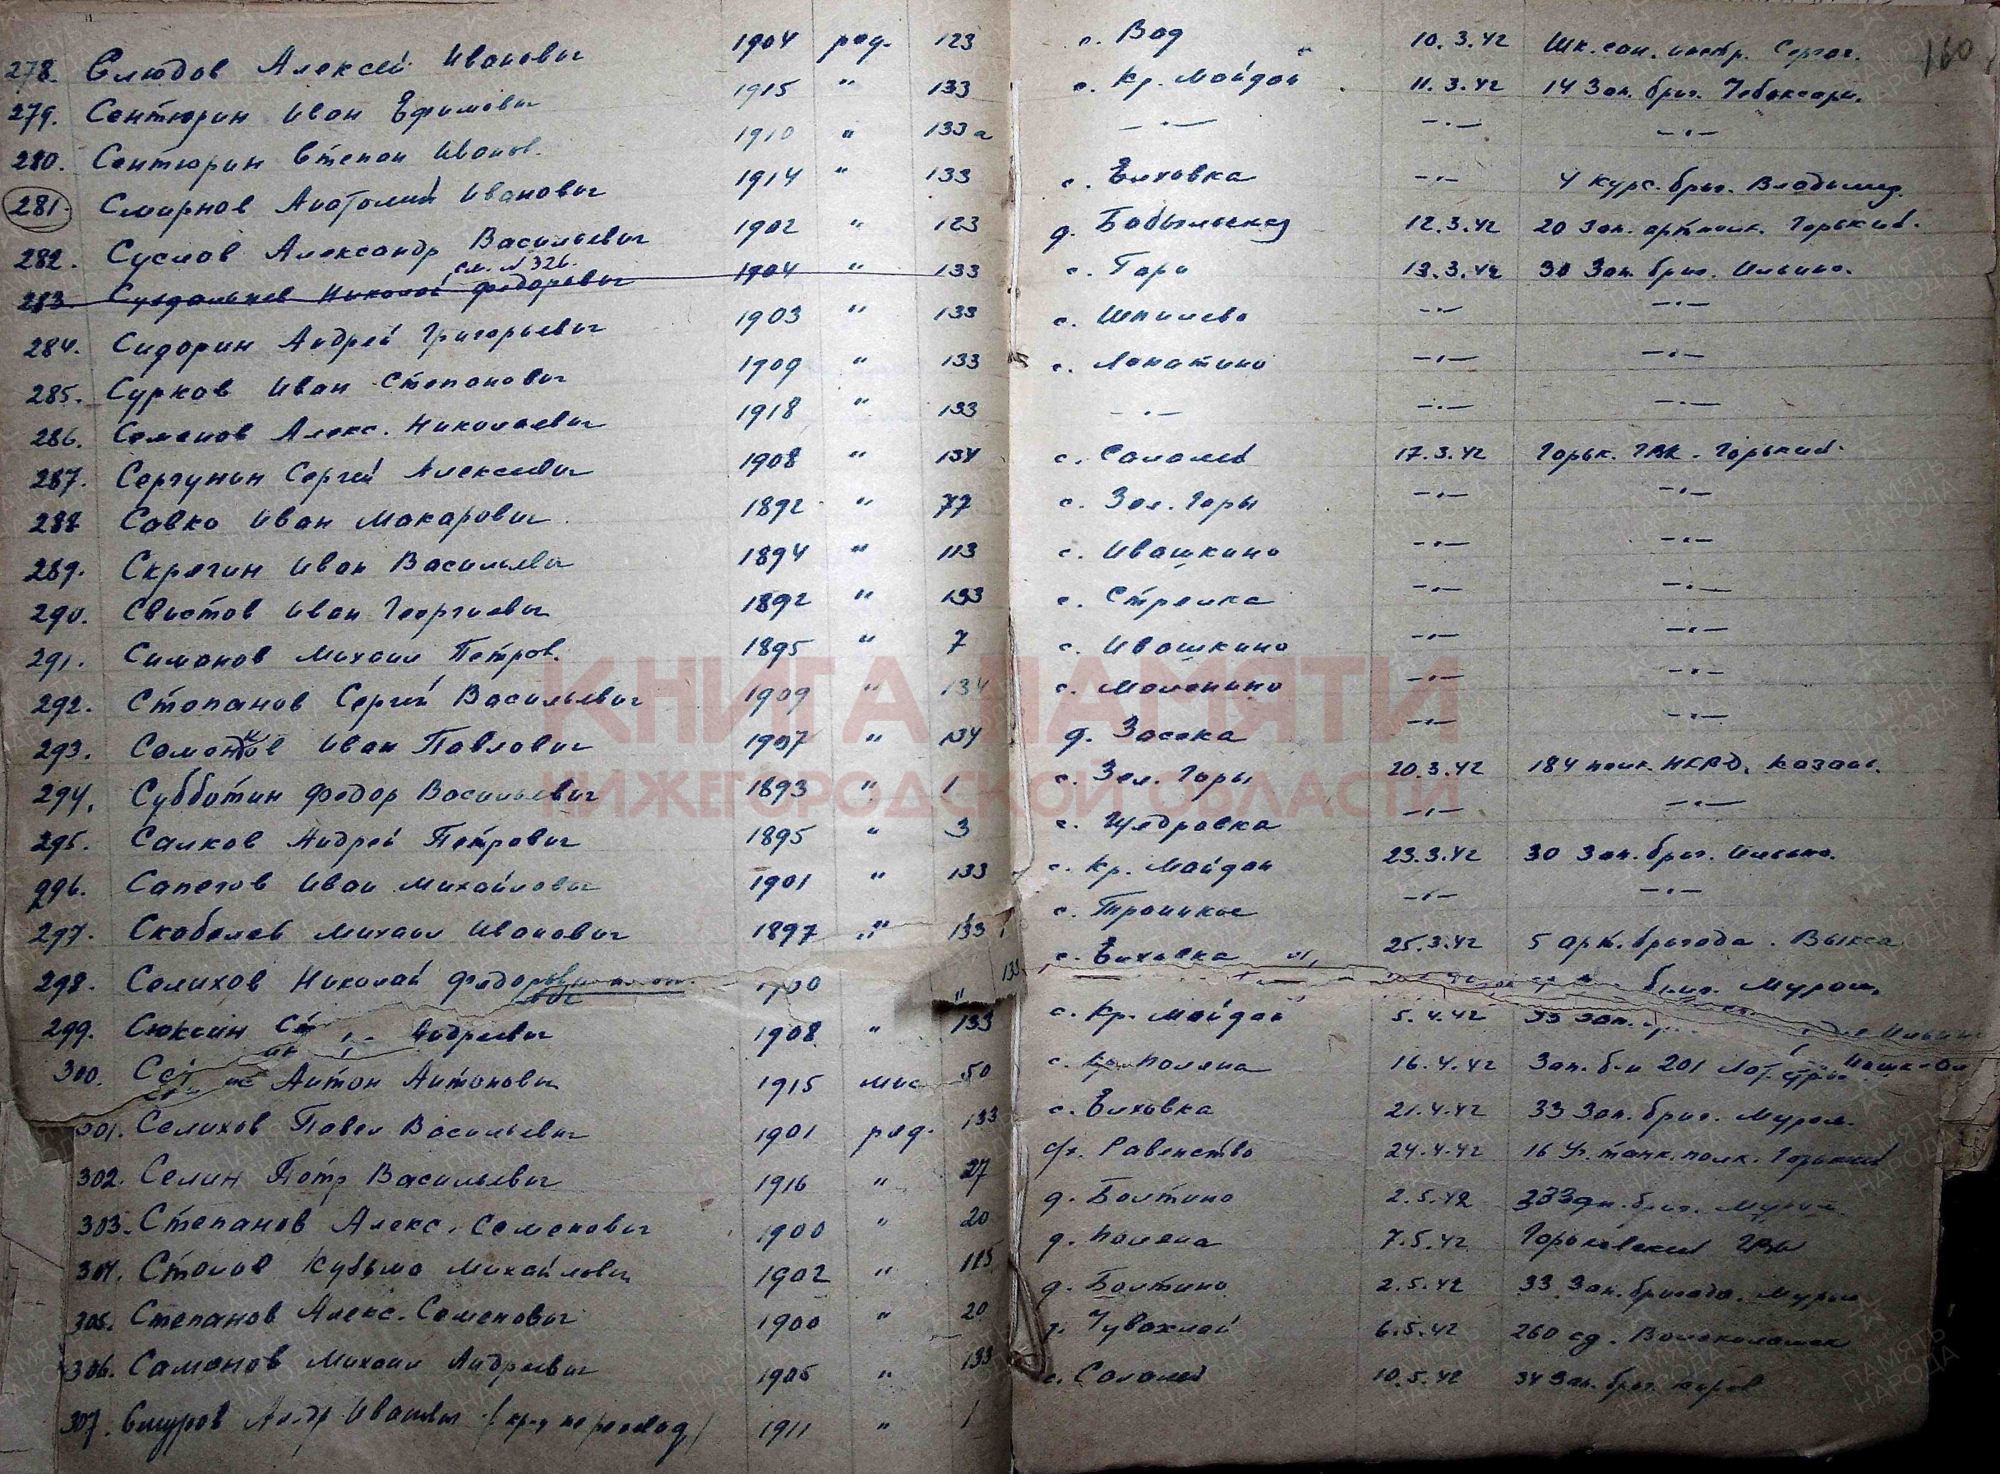 160
278. Слюдов Алексей Иванович 1904 ряд. 123 с. Вад 10.3.42 Шк. сан. инстр. Сергач.
279. Сентюрин Иван Ефимович 1915 " 133 с. Кр. Майдан 11.3.42 14 Зап. бриг. Чебоксары.
280. Сентюрин Степан Иванов. 1910 " 133а —"— —"— —"—
281. Смирнов Анатолий Иванович 1914 " 133 с. Елховка —"— 4 курс. бриг. Владимир.
282. Суслов Александр Васильевич 1902 " 123 д. Бобыльская 12.3.42 20 Зап. арт. полк. Горький.
см. N 326.
283 Суздальцев Николай Федорович 1904 " 133 с. Гари 13.3.42 30 Зап. бриг. Ильино.
284. Сидорин Андрей Григорьевич 1903 " 133 с. Шпилево —"— —"—
285. Сурков Иван Степанович 1909 " 133 с. Лопатино —"— —"—
286. Семенов Алекс. Николаевич 1918 " 133 —"— —"— —"—
287. Сергунин Сергей Алексеевич 1908 " 134 с. Салалей 17.3.42 Горьк. ГВК. Горький.
288 Савко Иван Макарович 1892 " 77 с. Зел. Горы —"— —"—
289. Скрягин Иван Васильевич 1894 " 113 с. Ивашкино —"— —"—
290. Свистов Иван Георгиевич 1892 " 133 с. Стрелка —"— —"—
291. Симонов Михаил Петров. 1895 " 7 с. Ивашкино —"— —"—
292. Степанов Сергей Васильевич 1909 " 134 с. —"— —"—
293. Иван Павлович 1907 " 134 д. Засека —"— —"—
294. Субботин Федор Васильевич 1893 " 1 с. Зел. Горы 20.3.42 184 полк. НКВД. Казань.
295. Салков Андрей Петрович 1895 " 3 с. Щедровка —"— —"—
296. Сапегов Иван Михайлович 1901 " 133 с. Кр. Майдан 23.3.42 30 Зап. бриг. Ильино.
297. Скобелев Михаил Иванович 1897 " 133 с. Троицкое —"— —"—
298. Селихов Николай Федорович 1900 " 133 с. Елховка 25.3.42 5 арт. бригада. Выкса
бриг. Муром.
299. Сюксин Андреевич 1908 " 133 с. Кр. Майдан 5.4.42 33 зап.
300. Антон Антонович 1915 50 с. Поляна 16.4.42 Зап. б-н 201 Лат. стр.
301. Селихов Павел Васильевич 1901 ряд. 133 с. Елховка 21.4.42 33 Зап. бриг. Муром.
302. Селин Петр Васильевич 1916 " 27 с/х. Равенство 24.4.42 16 Уч. танк. полк. Горький
303. Степанов Алекс. Семенович 1900 " 20 д. Болтино 2.5.42 бриг. Муром.
304. Столов Кузьма Михайлович 1902 " 115 д. Поляна 7.5.42 Горьковский ГВК
305. Степанов Алекс. Семенович 1900 " 20 д. Болтино 2.5.42 33 Зап. бригада. Муром
306. Самонов Михаил Андреевич 1905 " 133 6.5.42 260 сд. Волоколамск
307. Смуров Иванович 1911 " 1 с. Салалей 10.5.42 34 Зап. бриг. Киров
КНИГА ПАМЯТИ
НИЖЕГОРОДСКОЙ ОБЛАСТИ
ПАМЯТЬ НАРОДА